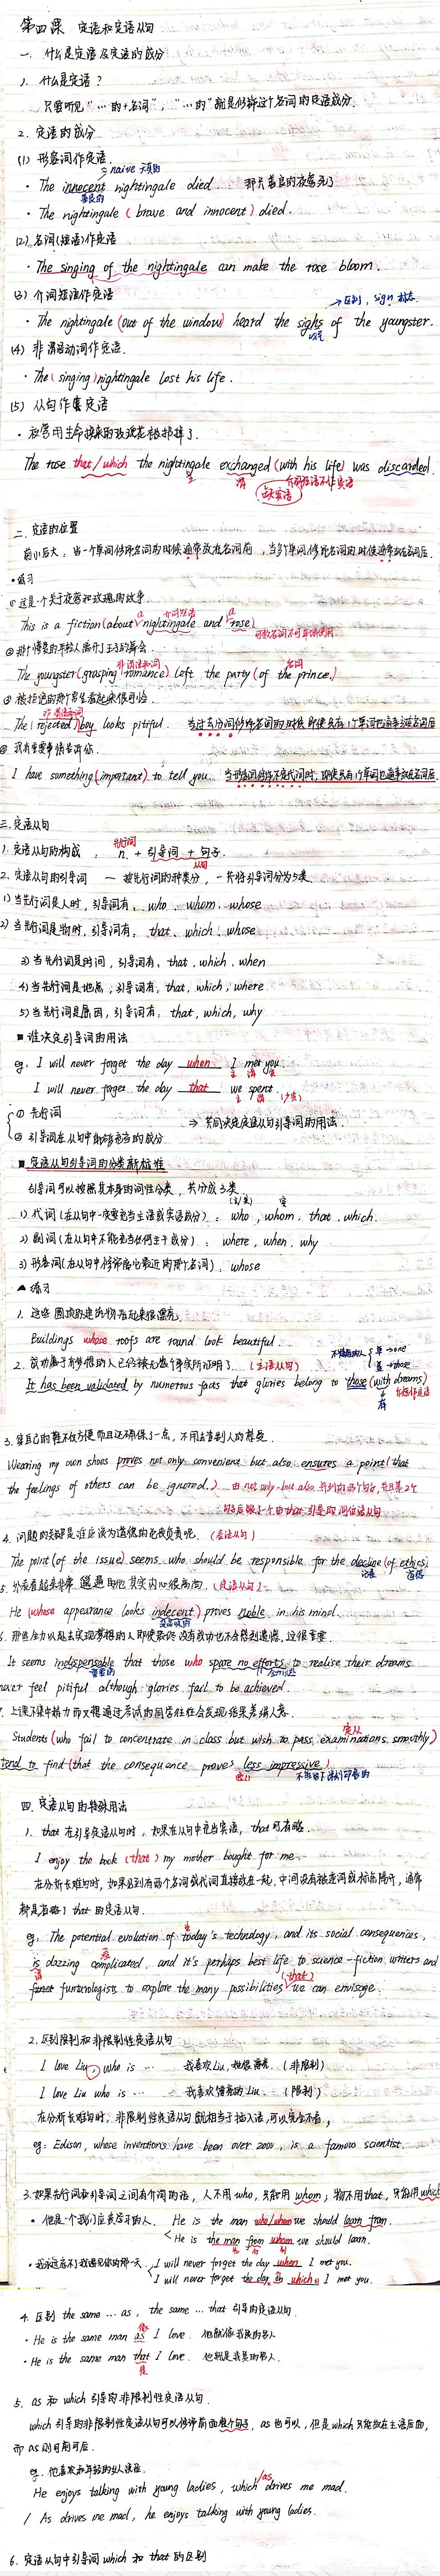 第四课 定语和定语从句
一、什么是定语及定语的成分
1. 什么是定语？
只要听见"…的+名词"，"…的"就是修饰这个名词的定语成分.
2. 定语的成分
(1) 形容词作定语.
naive 天真的
· The innocent nightingale died. 那只善良的夜莺死了
善良的
· The nightingale (brave and innocent) died.
(2) 名词(短语)作定语
· The singing of the nightingale can make the rose bloom.
(3) 介词短语作定语
→区别, sign 标志
· The nightingale (out of the window) heard the sighs of the youngster.
叹息
(4) 非谓语动词作定语.
· The (singing) nightingale lost his life.
(5) 从句作定语
· 夜莺用生命换来的玫瑰花被扔掉了.
The rose that/which the nightingale exchanged (with his life) was discarded.
主 谓 介词短语不作宾语
缺宾语
二、定语的位置
前小后大：当一个单词修饰名词的时候通常放在名词前，当多个单词修饰名词的时候通常放在名词后.
·练习
① 这是一个关于夜莺和玫瑰的故事.
a 介词短语 a
This is a fiction (about nightingale and rose)
可数名词不可单独使用.
② 那个憧憬的年轻人离开了王子的舞会.
非谓语动词 名词
The youngster (grasping romance) left the party (of the prince.)
③ 被拒绝的那个男生看起来很可怜.
非谓语动词
The (rejected) boy looks pitiful. 当过去分词修饰名词的时候 即使只有1个单词也通常放在名词后
④ 我有重要事情告诉你.
I have something (important) to tell you. 当形容词修饰不定代词时, 即使只有1个单词也通常放在名词后.
三、定语从句
先行词
1. 定语从句的构成：n. + 引导词 + 句子.
从句
2. 定语从句的引导词 — 按先行词的种类分，一共将引导词分为5类.
1) 当先行词是人时, 引导词有, who、whom、whose
2) 当先行词是物时, 引导词有, that、which、whose
3) 当先行词是时间, 引导词有, that, which, when
4) 当先行词是地点, 引导词有, that, which, where
5) 当先行词是原因, 引导词有, that, which, why
■ 谁决定引导词的用法
eg. I will never forget the day when I met you.
主 谓 宾
I will never forget the day that we spent.
主 谓 (少宾)
① 先行词
② 引导词在从句中能够充当的成分
⇒ 共同决定定语从句引导词的用法.
■ 定语从句引导词的分类新标准
引导词可以按照其本身的词性分类，共分成3类.
(主/宾) 宾
1) 代词(在从句中一定要充当主语或宾语成分)：who, whom, that, which.
2) 副词(在从句中不能充当任何主干成分)：where, when, why
3) 形容词(在从句中修饰离它最近的那个名词)：whose
▲ 练习
1. 这些圆顶的建筑物看起来很漂亮.
Buildings whose roofs are round look beautiful.
2. 成功属于有梦想的人已经被无数个事实所证明了. (主语从句)
单→one
复→those
It has been validated by numerous facts that glories belong to those (with dreams)
有 介短作定语
3. 穿自己的鞋不仅方便而且还确保了一点, 不用去害别人的尊是.
Wearing my own shoes proves not only convenient but also ensures a point (that
the feelings of others can be ignored.) 由not only…but also 并列的两个句子, 并且第2个
句子后跟了个由that引导的同位语从句
4. 问题的关键是谁应该为道德的沦丧负责呢. (表语从句)
The point (of the issue) seems who should be responsible for the decline (of ethics)
沦丧 道德
5. 外表看起来非常邋遢的他其实内心很高尚. (定语从句)
He (whose appearance looks indecent) proves noble in his mind.
6. 那些全力以赴去实现梦想的人即使最终没有成功也不会感到遗憾, 这很重要.
It seems indispensable that those who spare no efforts to realise their dreams
重要的 全力以赴
never feel pitiful although glories fail to be achieved.
7. 上课不集中精力而又想通过考试的同学往往会发现结果差强人意.
定从
Students (who fail to concentrate in class but wish to pass examinations smoothly)
tend to find (that the consequence proves less impressive)
宾从 不能给予深刻印象的
四、定语从句的特殊用法
1. that 在引导定语从句时, 如果在从句中充当宾语, that可省略.
I enjoy the book (that) my mother bought for me.
在分析长难句时, 如果见到有两个名词或代词直接放在一起, 中间没有被连词或标点隔开, 通常
都是省略了that 的定语从句.
主
eg. The potential evolution of today's technology, and its social consequences,
表
is dazzing complicated, and it's perhaps best life to science-fiction writers and
谓
(that)
furturologists to explore the many possibilities we can envisage.
2. 区别限制和非限制性定语从句
I love Liu, who is … 我喜欢Liu, 她很漂亮. (非限制)
I love Liu who is … 我喜欢漂亮的Liu. (限制)
在分析长难句时, 非限制性定语从句就相当于插入语, 可以完全不看,
eg: Edison, whose inventions have been over 2000, is a famous scientist.
3. 如果先行词和引导词之间有介词的话, 人不用who, 只能用whom; 物不用that, 只能用which
· 他是一个我们应该学习的人. He is the man who/whom we should learn from.
He is the man from whom we should learn.
· 我永远忘不了我遇见你的那一天. I will never forget the day when I met you.
I will never forget the day in which I met you.
4. 区别 the same … as , the same … that 引导的定语从句.
像
· He is the same man as I love. 他就像我爱的男人
· He is the same man that I love. 他就是我爱的男人.
是
5. as 和 which 引导的非限制性定语从句.
which 引导的非限制性定语从句可以修饰前面整个句子, as 也可以, 但是which 只能放在主语后面,
而as则可前可后.
eg. 他喜欢和年轻的女人谈话.
/as
He enjoys talking with young ladies, which drives me mad.
/ As drives me mad, he enjoys talking with young ladies.
6. 定语从句中引导词 which 和 that 的区别